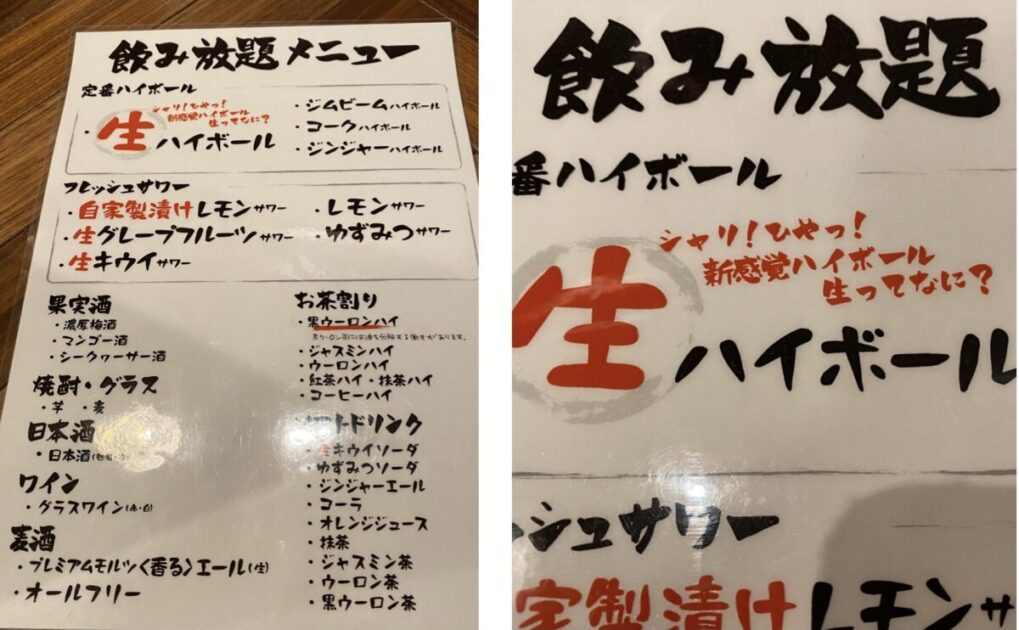 飲み放題メニュー
定番ハイボール
シャリ！ひやっ！
新感覚ハイボール
生ってなに？
・生ハイボール
・ジムビームハイボール
・コークハイボール
・ジンジャーハイボール
フレッシュサワー
・自家製漬けレモンサワー
・生グレープフルーツサワー
・生キウイサワー
・レモンサワー
・ゆずみつサワー
果実酒
・濃厚梅酒
・マンゴー酒
・シークヮーサー酒
焼酎・グラス
・芋 ・麦
日本酒
・日本酒
ワイン
・グラスワイン(赤・白)
麦酒
・プレミアムモルツ〈香る〉エール(生)
・オールフリー
お茶割り
・黒ウーロンハイ
黒ウーロン茶には脂を分解する働きがあります。
・ジャスミンハイ
・ウーロンハイ
・紅茶ハイ・抹茶ハイ
・コーヒーハイ
トドリンク
・生キウイソーダ
・ゆずみつソーダ
・ジンジャーエール
・コーラ
・オレンジジュース
・抹茶
・ジャスミン茶
・ウーロン茶
・黒ウーロン茶
飲み放題
番ハイボール
シャリ！ひやっ！
新感覚ハイボール
生ってなに？
生ハイボール
シュサワー
家製漬けレモンサ